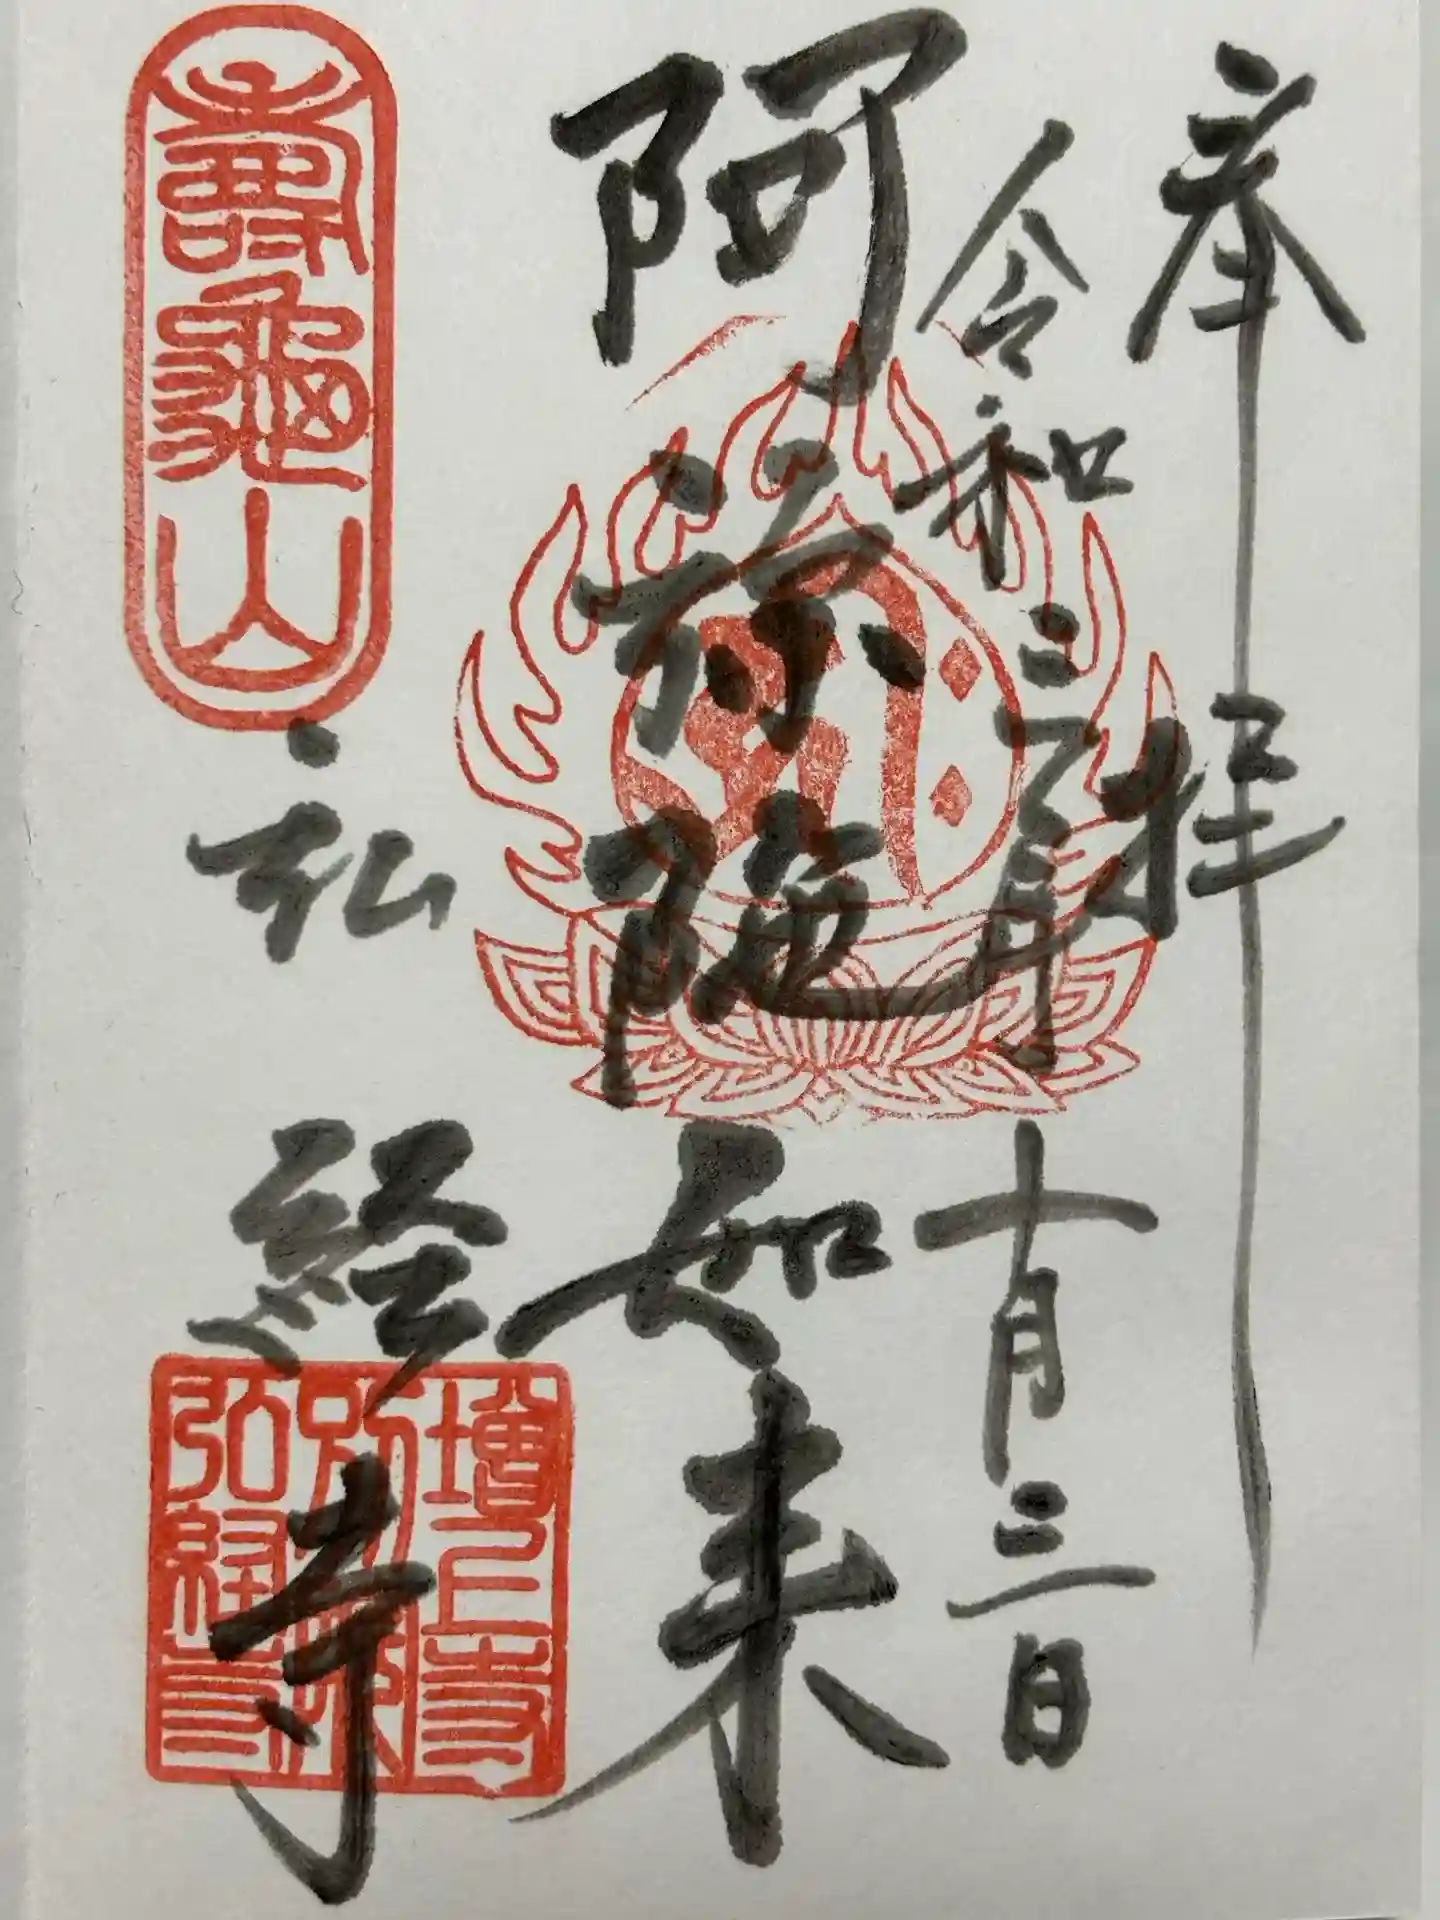 奉拝
令和三年十月三日
阿弥陀如来
弘経寺
壽龜山
増上寺
弘經寺